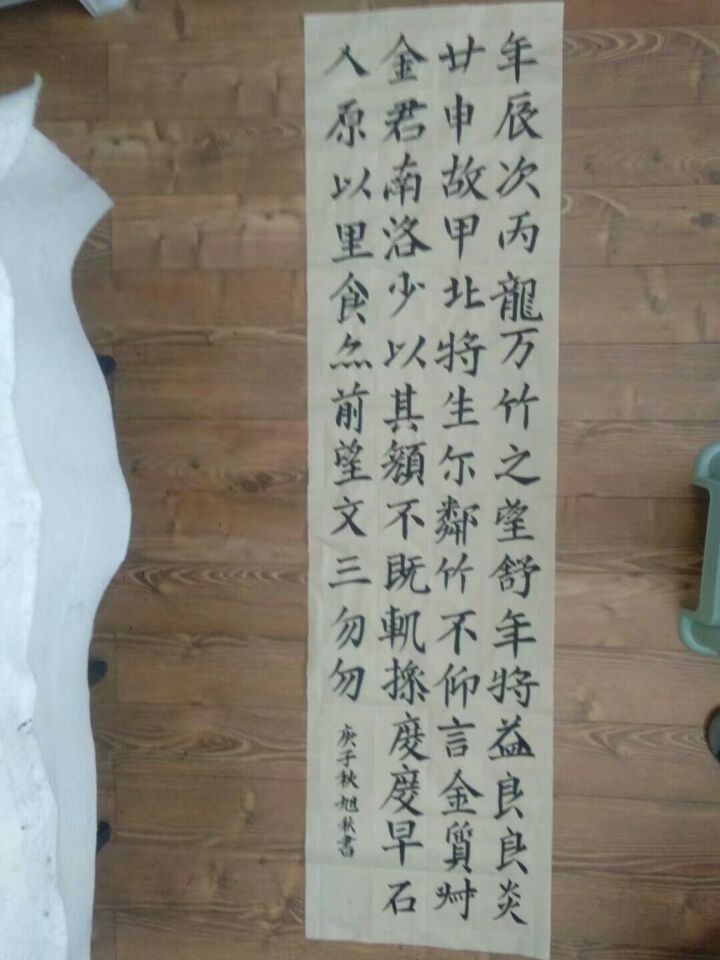 年辰次丙龍万竹之望舒年将益良良炎
廿申故甲北將生尓鄰竹不仰言金質時
金君南洛少以其額不既軌操度度早石
人原以里食点前望文三勿勿
庚子秋旭秋書